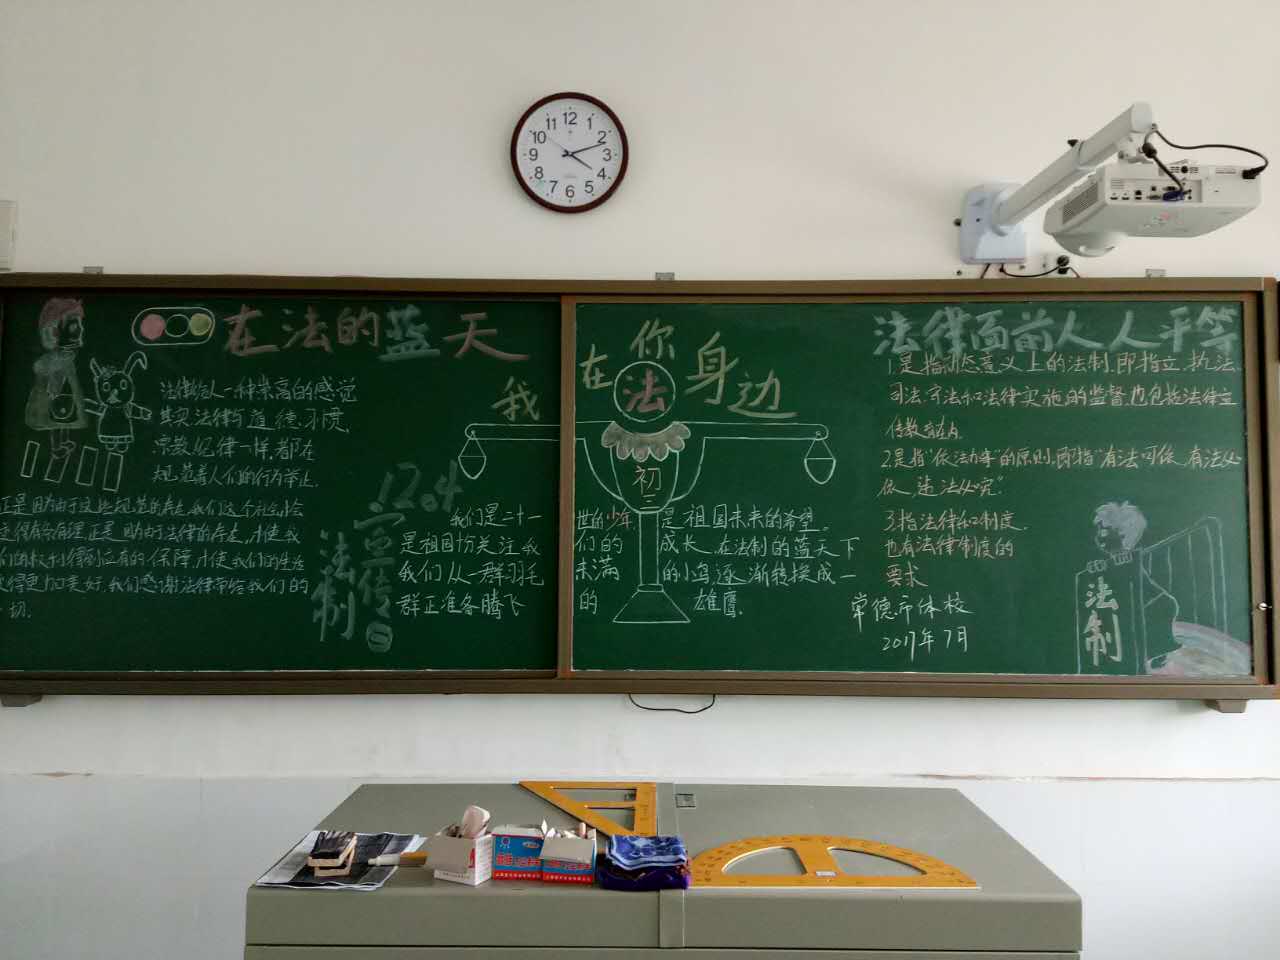 12
11
1
10
2
9
3
8
4
7
5
6
在法的蓝天
法律给人一种崇高的感觉
其实法律与道德、习惯、
宗教纪律一样,都在
规范着人们的行为举止.
正是因为由于这些规范的存在,我们这个社会才会
变得有条有理,正是因为由于法律的存在,才使我
们的权利得到应有的保障,才使我们的生活
变得更加美好,我们感谢法律带给我们的
一切.
12.4
法制
宣传
我
在
你
身
边
法
初二
我们是二十一世的少年.是祖国未来的希望。
是祖国十分关注我们的成长,在法制的蓝天下
我们从一群羽毛未满的小鸟,逐渐转换成一
群正准备腾飞的雄鹰.
法律面前人人平等
1.是指动态意义上的法制,即指立、执法、
司法、守法和法律实施的监督,也包括法律
传教育在内.
2.是指"依法办事"的原则,即指"有法可依,有法必
依,违法必究"
3.指法律和制度.
也有法律制度的
要求
常德市体校
2017年7月
法制